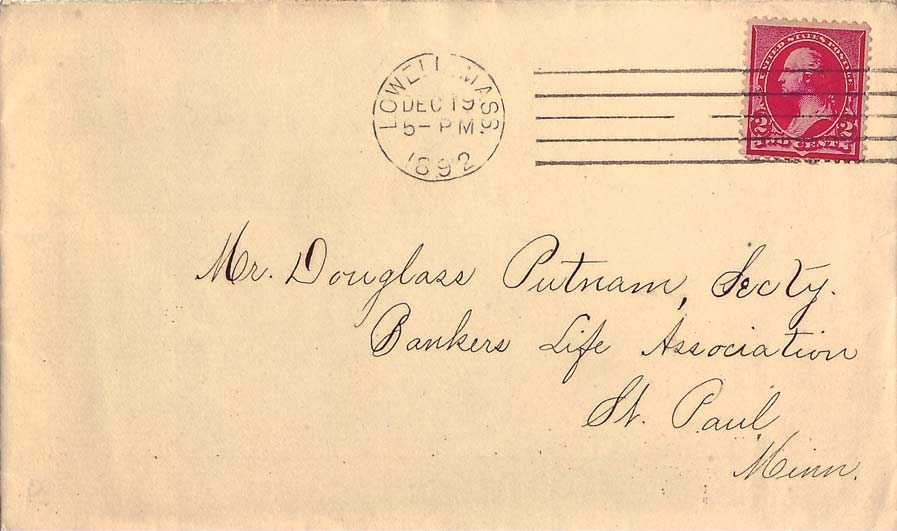 LOWELL MASS.
DEC 19
5- P M
1892
UNITED STATES POSTAGE
2 2
TWO CENTS
Mr. Douglass Putnam, Secty.
Bankers Life Association
St. Paul
Minn.